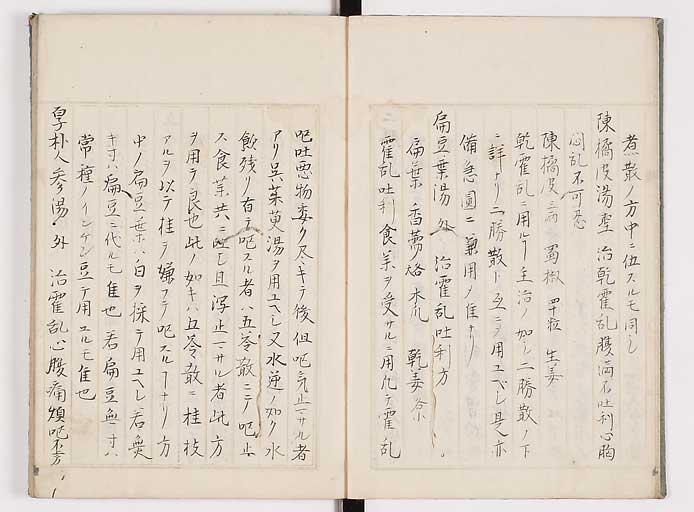 煮散ノ方中ニ伍スルモ同シ
陳橘皮湯聖 治乾霍乱腹満不吐利心胸
悶乱不可忍
陳橘皮三両 蜀椒四十粒 生姜
乾霍乱ニ用ル主治ノ如シ二勝散ノ下
ニ詳ナリ二勝散ト互ニヲ用ユベシ是亦
備急圓ニ兼用ノ佳ナリ
扁豆葉湯外 治霍乱吐利方
扁葉 香薷 木爪 乾姜
霍乱吐利食薬ヲ受サルニ用凡テ霍乱
吐悪物尽ク尽キテ後但吐気止マサル者
アリ呉茱萸湯ヲ用ユヘシ又水逆ノ如ク水
飲残リ有テ吐スル者ハ五苓散ニテ吐止
ス食薬共ニ吐シ且瀉止マサル者此方
ヲ用テ良也此ノ如キハ五苓散ニ桂枝
アルヲ以テ桂ヲ嫌フテ吐スルナリ方
中ノ扁豆葉ハ白ヲ採テ用ユヘシ若葉
キ寸ハ扁豆ニ代ルモ佳也若扁豆無寸ハ
常種ノインゲン豆テ用ユルモ佳也
厚朴人参湯外 治霍乱心腹痛煩吐不